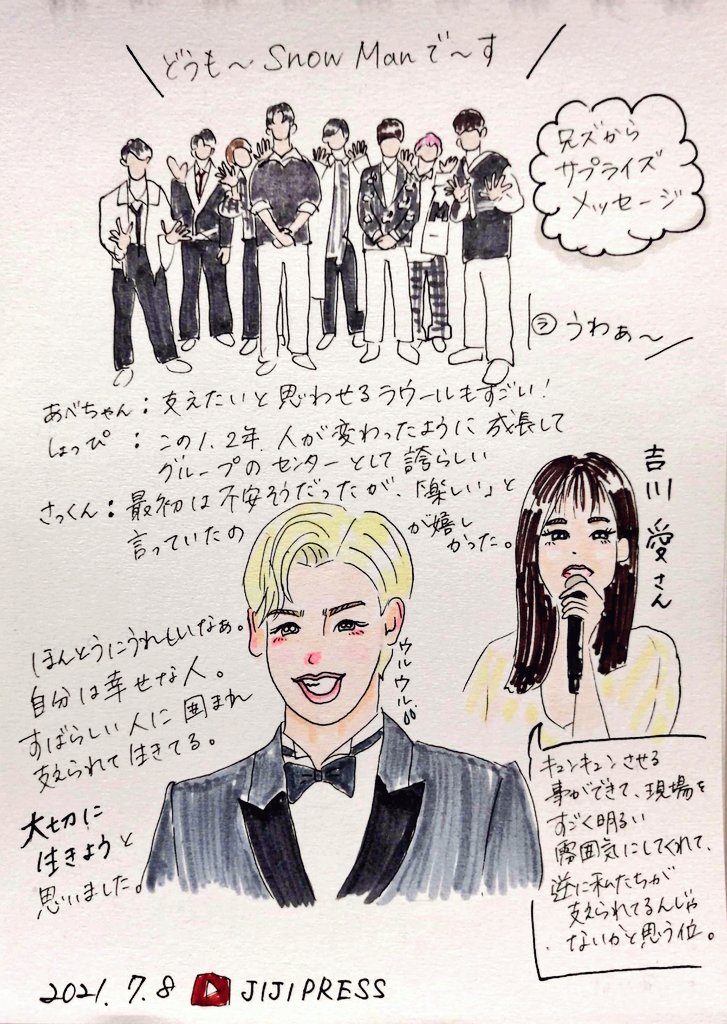 どうも〜 Snow Manで〜す
兄ズから
サプライズ
メッセージ
ラ うわぁ〜
あべちゃん：支えたいと思わせるラウールもすごい！
しょっぴ：この1、2年、人が変わったように成長して
グループのセンターとして誇らしい
さっくん：最初は不安そうだったが、「楽しい」と
言っていたのが嬉し
かった。
吉川 愛さん
ほんとうにうれしいなぁ。
自分は幸せな人。
すばらしい人に囲まれ
支えられて生きてる。
大切に
生きようと
思いました。
ウルウル
キュンキュンさせる
事ができて、現場を
すごく明るい
雰囲気にしてくれて、
逆に私たちが
支えられてるんじゃ
ないかと思う位。
2021.7.8 JIJIPRESS